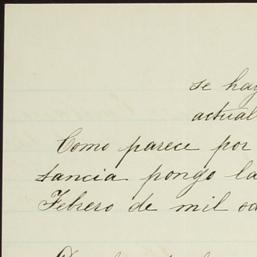 se hay
actual
Como parece por
tancia pongo la
Febrero de mil oc